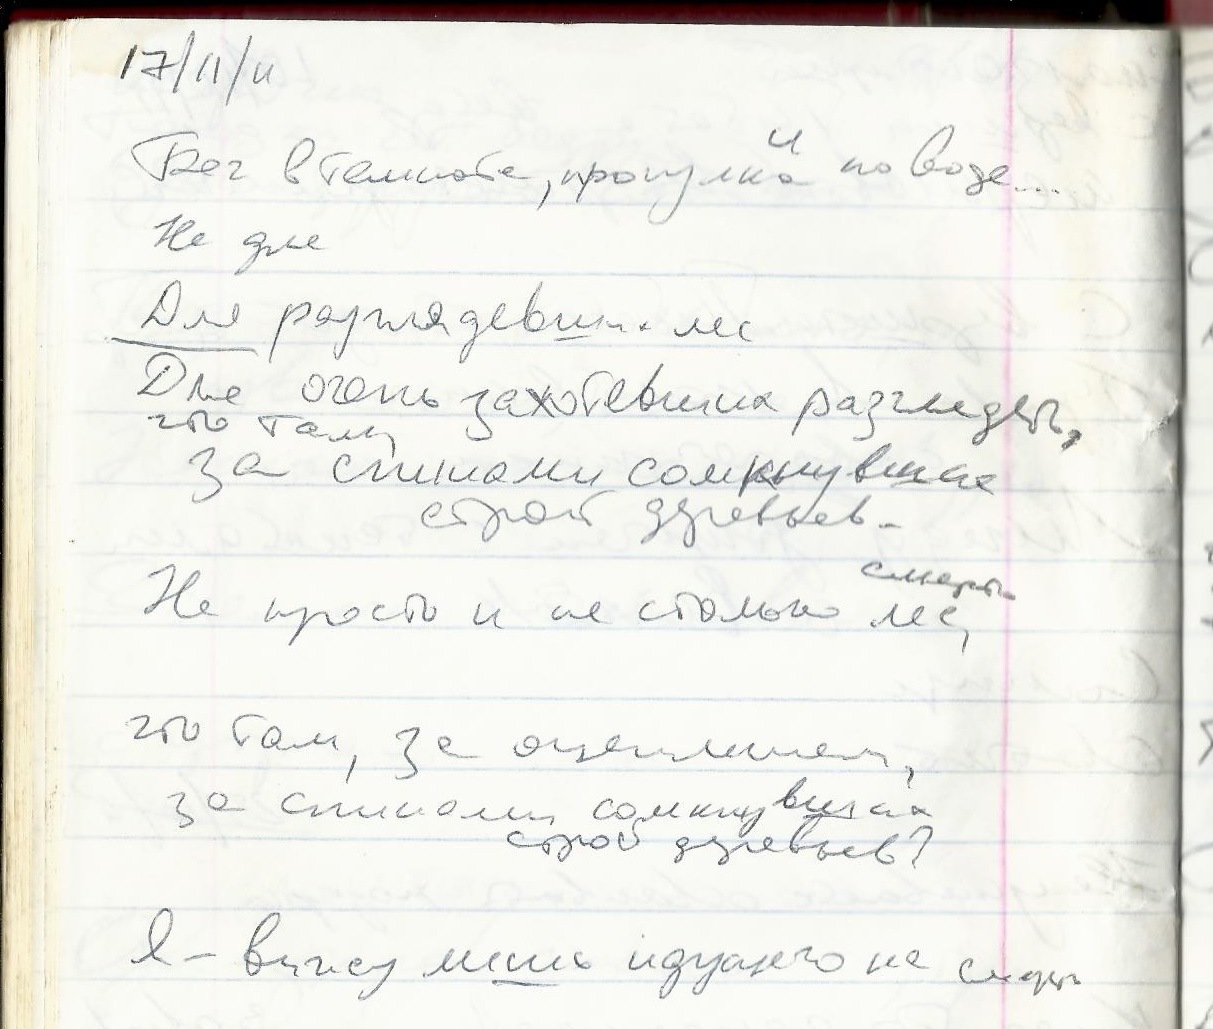 17/11/11
Бег в темноте, прогулка и по воде...
Не для
Для разглядевших лес
Для очень захотевших разглядеть,
что там,
за спинами сомкнувших
строй деревьев.
смерть
Не просто и не столько лес,
что там, за оцеплением,
за спинами сомкнувших
строй деревьев?
Я – вижу лишь идущего на смерть